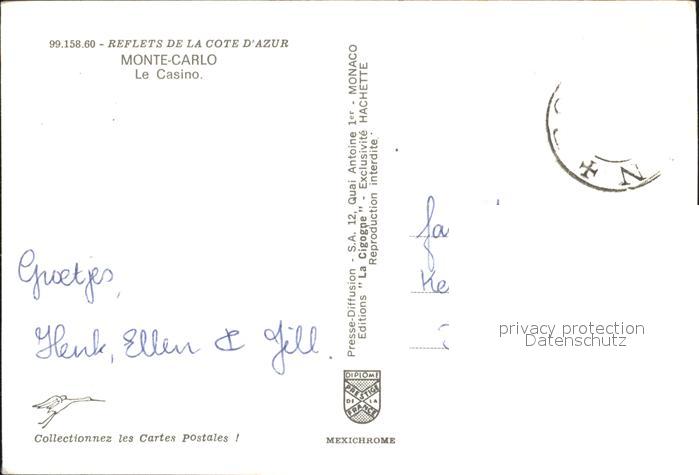 99.158.60 - REFLETS DE LA COTE D'AZUR
MONTE-CARLO
Le Casino.
Groetjes,
Henk, Ellen & Jill.
Collectionnez les Cartes Postales !
Presse-Diffusion - S.A. 12, Quai Antoine 1er - MONACO
Editions "La Cigogne" - Exclusivité HACHETTE
Reproduction interdite.
DIPLOME
PRESTIGE
DE LA
FRANCE
MEXICHROME
fa
Ke
N
privacy protection
Datenschutz